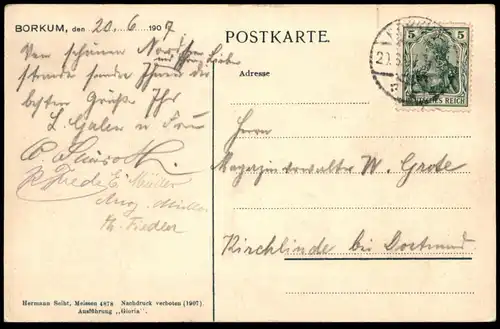 BORKUM, den 20. 6. 1907
POSTKARTE.
Adresse
Vom schönen Nordsee
strande sendet Ihnen
und Ihrer Lieben
besten Grüße Ihr
L. Galen u Frau
E. Müller
Aug. Müller
Th. Fiedler
Herrn
Magazinverwalter W. Grote
Kirchlinde bei Dortmund
5 5
DEUTSCHES REICH
Hermann Seibt, Meissen 4878 Nachdruck verboten (1907).
Ausführung „Gloria".